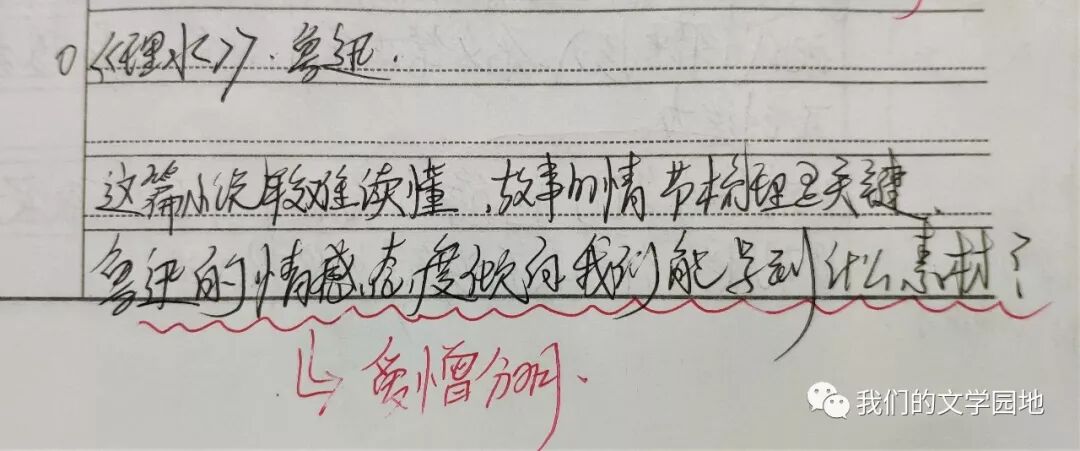 《理水》.鲁迅.
这篇小说较难读懂,故事的情节梳理是关键、
鲁迅的情感、态度倾向我们能学到什么素材?
爱憎分明.
我们的文学园地